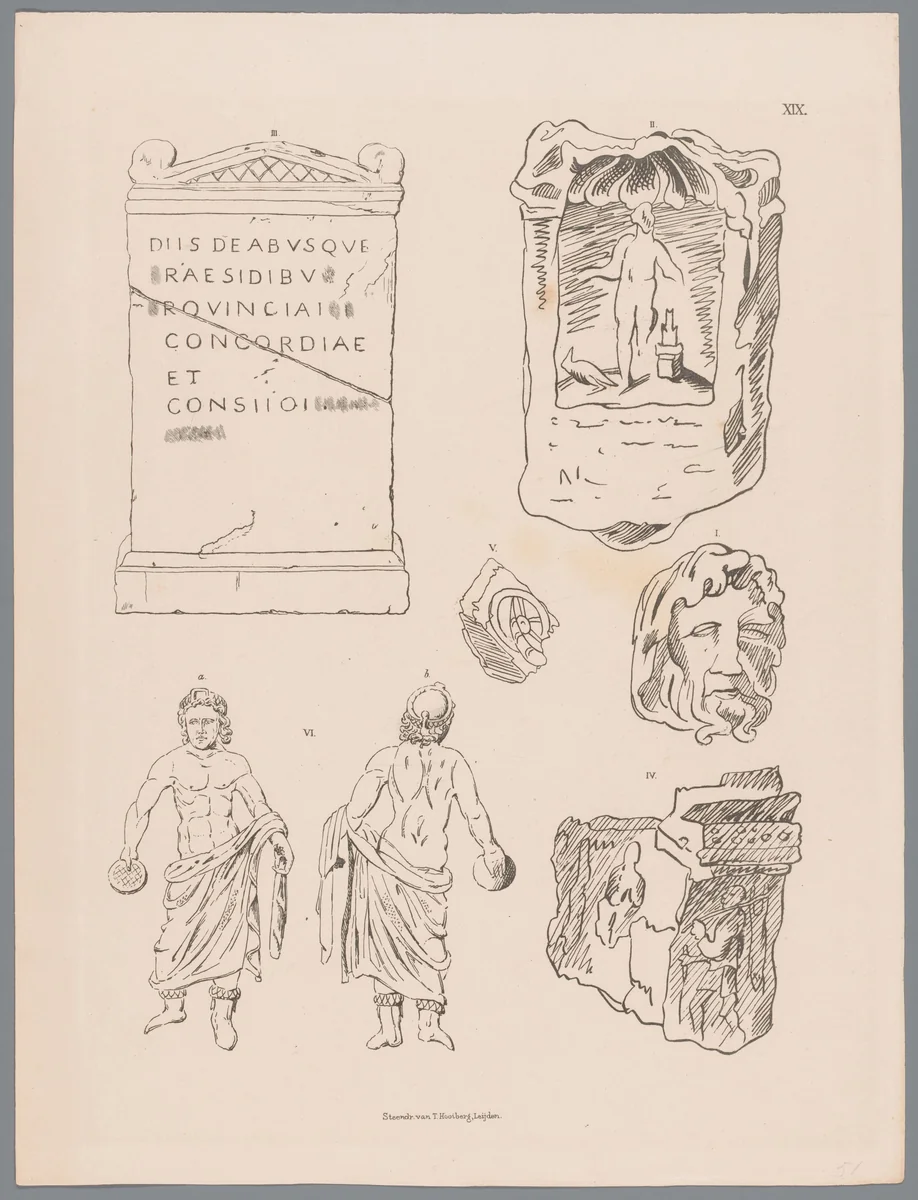 XIX.
III.
II.
DIIS DEABVSQVE
RAESIDIBV
ROVINCIAI
CONCORDIAE
ET
CONSIIOI
V.
I.
a.
b.
VI.
IV.
Steendr. van T. Hooiberg, Leijden.